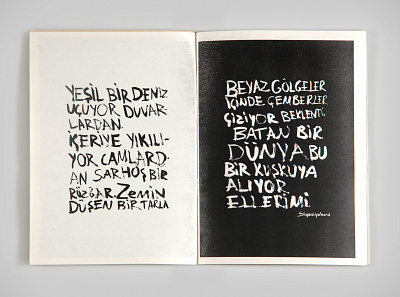 YEŞİL BİR DENİZ
UÇUYOR DUVAR-
LARDAN.
İÇERİYE YIKILI-
YOR CAMLARD-
AN SARHOŞ BİR
RÜZGAR. ZEMİN
DÜŞEN BİR TARLA.
BEYAZ GÖLGELER
İÇİNDE ÇEMBERLER
ÇİZİYOR BEKLENTİ.
BATAN BİR
DÜNYA BU
BİR KUŞKUYA
ALIYOR
ELLERİMİ.